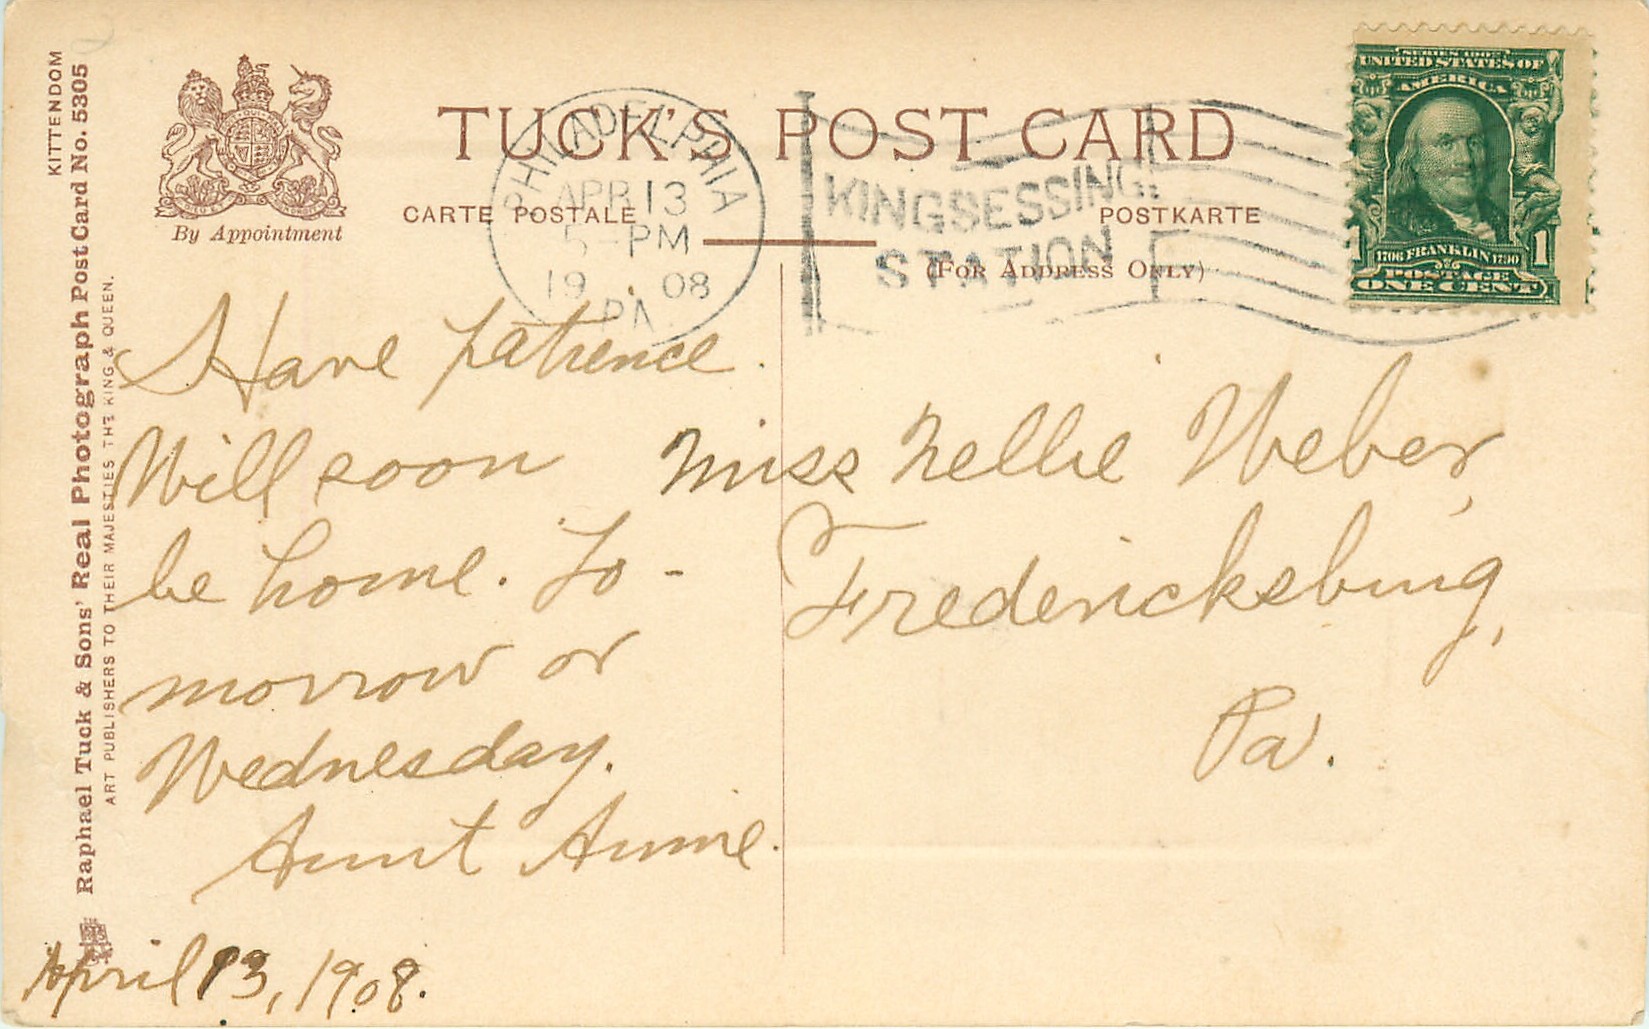 KITTENDOM
Raphael Tuck & Sons' Real Photograph Post Card No. 5305
ART PUBLISHERS TO THEIR MAJESTIES THE KING & QUEEN.
By Appointment
TUCK'S POST CARD
CARTE POSTALE
POSTKARTE
(FOR ADDRESS ONLY)
PHILADELPHIA
APR 13
5-PM
19 08
PA.
KINGSESSING
STATION
SERIES 1902
UNITED STATES OF
AMERICA
1706 FRANKLIN 1790
1 1
POSTAGE
ONE CENT
Have patience.
Will soon
be home. To-
morrow or
Wednesday.
Aunt Annie.
April 13, 1908.
Miss Nellie Weber,
Fredericksburg,
Pa.